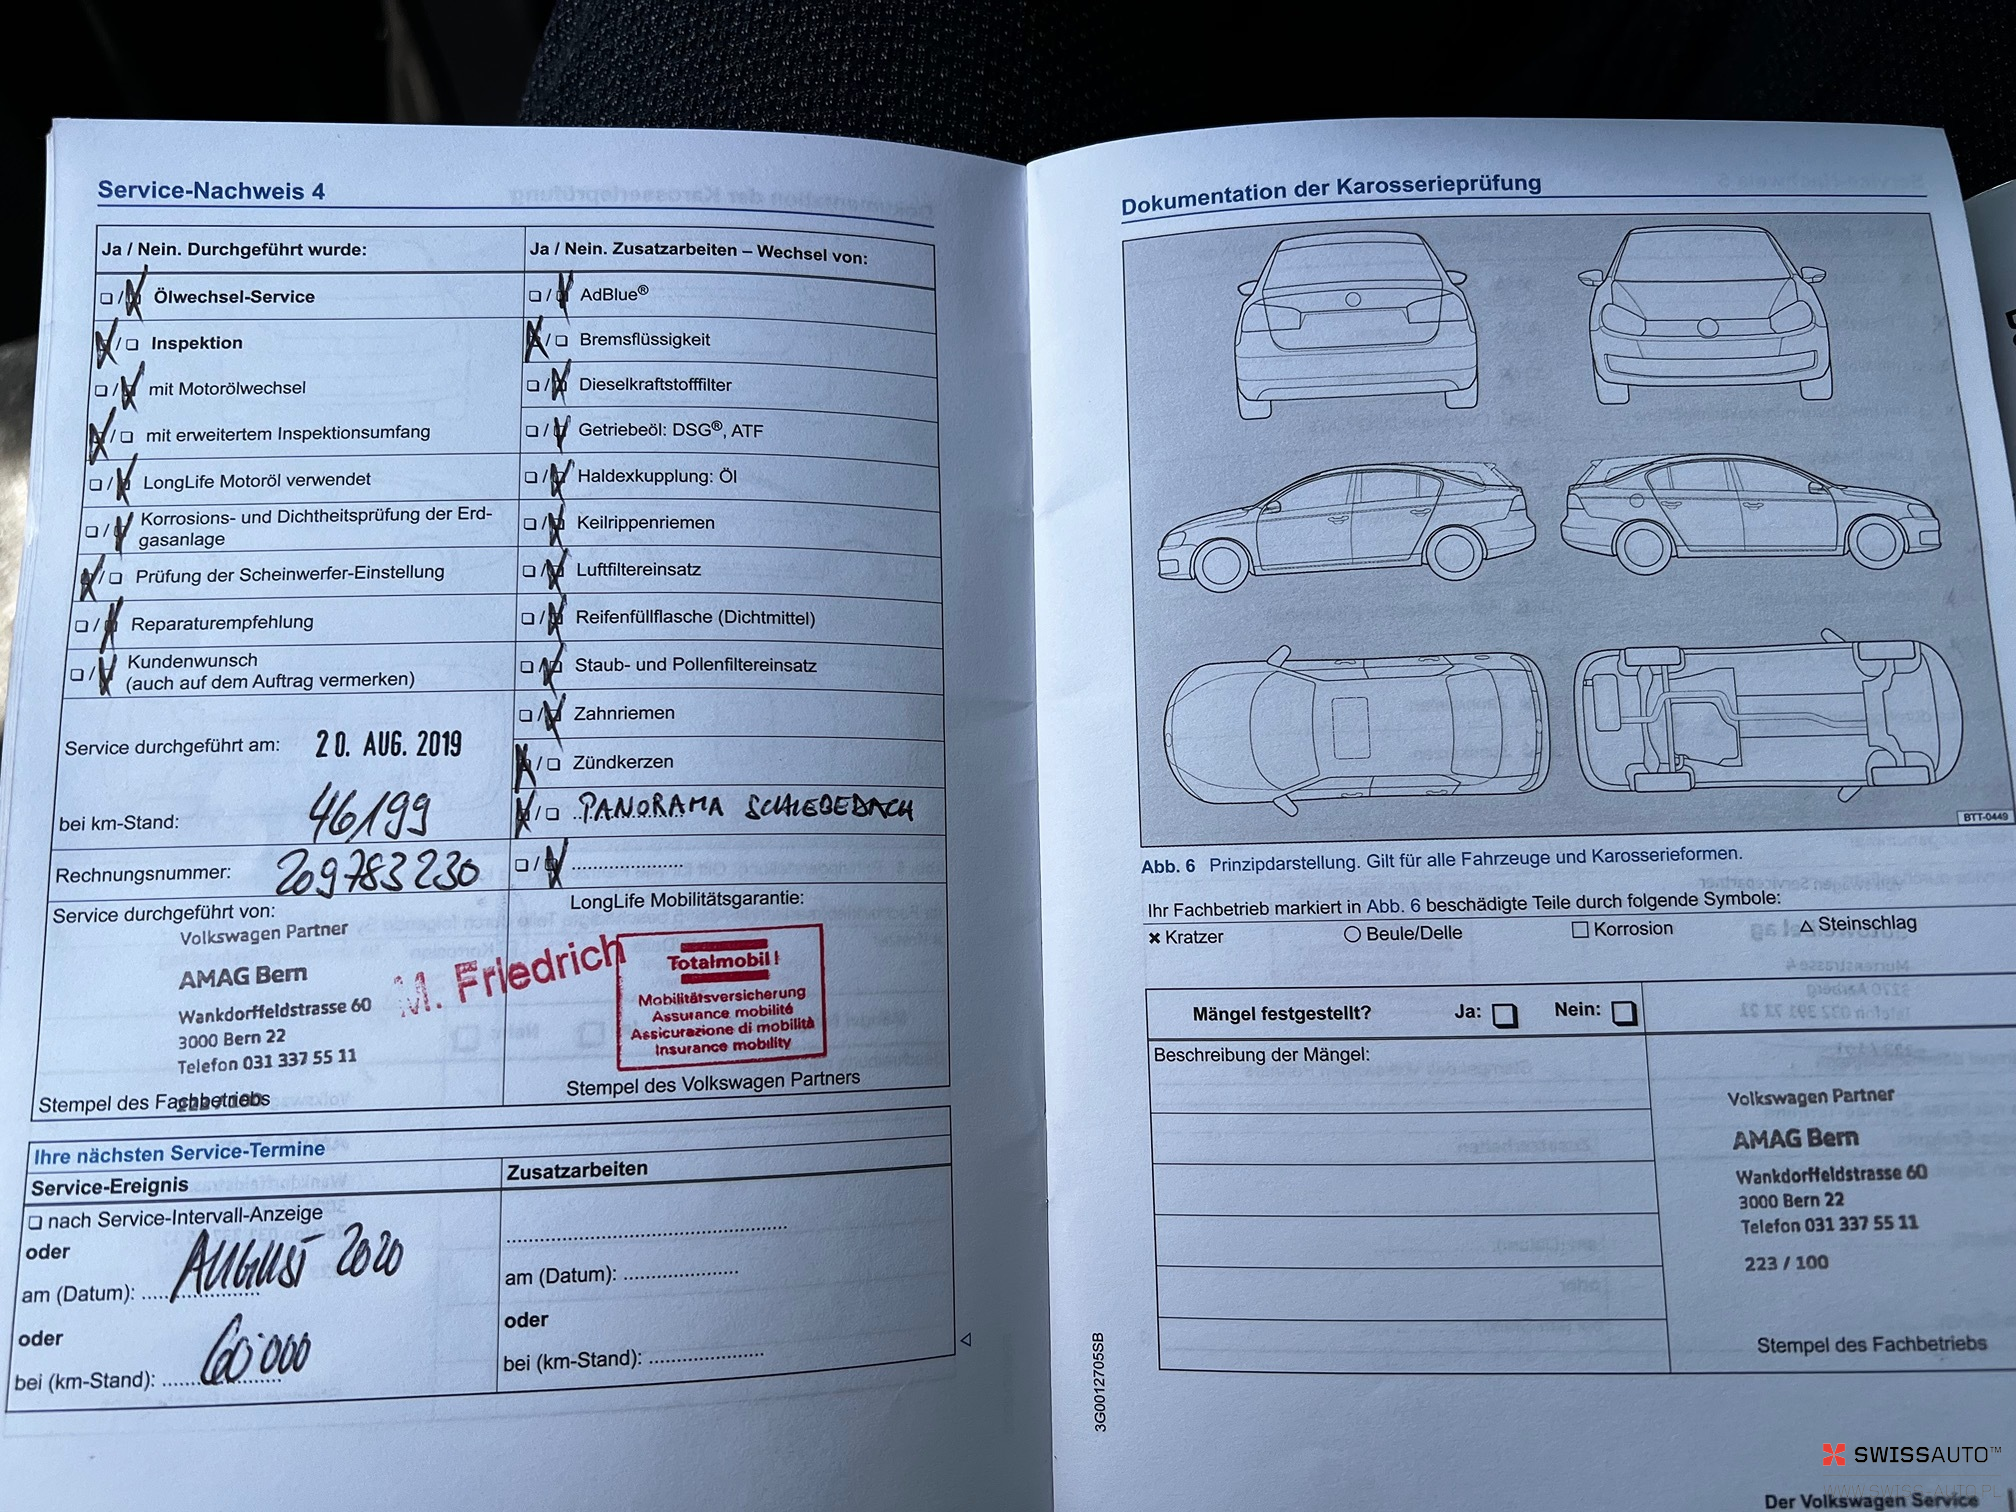 Service-Nachweis 4
Ja / Nein. Durchgeführt wurde:
Ölwechsel-Service
Inspektion
mit Motorölwechsel
mit erweitertem Inspektionsumfang
LongLife Motoröl verwendet
Korrosions- und Dichtheitsprüfung der Erd-
gasanlage
Prüfung der Scheinwerfer-Einstellung
Reparaturempfehlung
Kundenwunsch
(auch auf dem Auftrag vermerken)
Service durchgeführt am: 20. AUG. 2019
bei km-Stand: 46199
Rechnungsnummer: 209783230
Service durchgeführt von:
Volkswagen Partner
AMAG Bern
Wankdorffeldstrasse 60
3000 Bern 22
Telefon 031 337 55 11
Stempel des Fachbetriebs
M. Friedrich
Ja / Nein. Zusatzarbeiten – Wechsel von:
AdBlue®
Bremsflüssigkeit
Dieselkraftstofffilter
Getriebeöl: DSG®, ATF
Haldexkupplung: Öl
Keilrippenriemen
Luftfiltereinsatz
Reifenfüllflasche (Dichtmittel)
Staub- und Pollenfiltereinsatz
Zahnriemen
Zündkerzen
PANORAMA SCHIEBEDACH
LongLife Mobilitätsgarantie:
Totalmobil!
Mobilitätsversicherung
Assurance mobilité
Assicurazione di mobilità
Insurance mobility
Stempel des Volkswagen Partners
Ihre nächsten Service-Termine
Service-Ereignis
nach Service-Intervall-Anzeige
oder
am (Datum): AUGUST 2020
oder
bei (km-Stand): 60'000
Zusatzarbeiten
am (Datum):
oder
bei (km-Stand):
Dokumentation der Karosserieprüfung
BTT-0449
Abb. 6 Prinzipdarstellung. Gilt für alle Fahrzeuge und Karosserieformen.
Ihr Fachbetrieb markiert in Abb. 6 beschädigte Teile durch folgende Symbole:
Kratzer Beule/Delle Korrosion Steinschlag
Mängel festgestellt? Ja: Nein:
Beschreibung der Mängel:
Volkswagen Partner
AMAG Bern
Wankdorffeldstrasse 60
3000 Bern 22
Telefon 031 337 55 11
223 / 100
Stempel des Fachbetriebs
3G0012705SB
SWISSAUTO™
Der Volkswagen Service